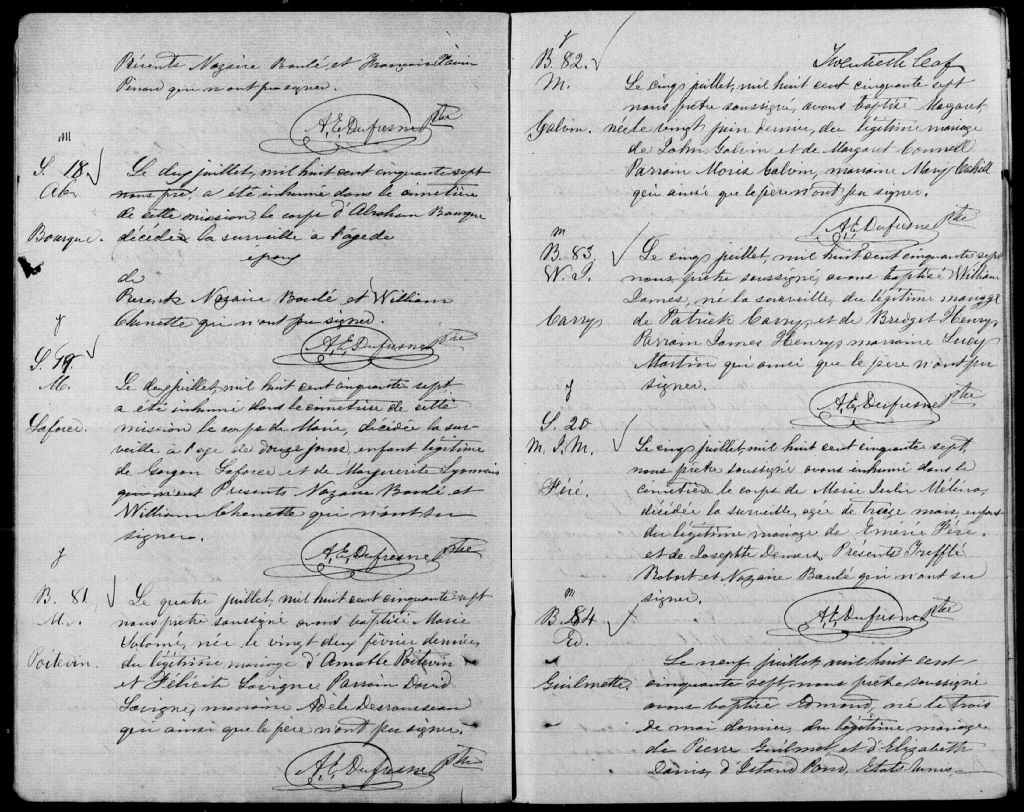 Présents Nazaire Boulé, et François Xavier
Pinard qui n'ont pu signer.
A. E. Dufresne ptre
m
S. 18
Ab.
Bourque.
Le deux juillet, mil huit cent cinquante sept
nous pre, a été inhumé dans le cimetière
de cette mission, le corps d'Abraham Bourque
décédé la surveille a l'age de
epoux
de
Presents Nazaire Boulé et William
Chenette qui n'ont pu signer.
A. E. Dufresne ptre
f
S. 19.
M.
Laforce.
Le deux juillet, mil huit cent cinquante sept
a été inhumé dans le cimetière de cette
mission le corps de Marie, decidée la sur-
veille à l'age de douze jours, enfant légitime
de Gorgon Laforce et de Marguerite Lyonnais
qui n'ont Presents Nazaire Boulé et
William Chenette qui n'ont su
signer.
A. E. Dufresne ptre
f
B. 81
M. S.
Poitevin.
Le quatre juillet, mil huit cent cinquante sept
nous prêtre soussigné avons baptisé Marie
Salomé, née le vingt deux février dernier,
du légitime mariage d'Amable Poitevin
et Félicité Lavigne, Parrain David
Lavigne, marraine Adèle Desrousseau
qui ainsi que le père n'ont pu signer.
A. E. Dufresne ptre
Twentieth leaf
f
B. 82.
M.
Galvin.
Le cinq juillet, mil huit cent cinquante sept
nous prêtre soussigné, avons baptisé Margaret
née le vingt juin dernier, du légitime mariage
de John Galvin et de Margaret Connell
Parrain Moris Galvin, marraine Mary Cahill
qui ainsi que le père n'ont pu signer.
A. E. Dufresne ptre
m
B. 83.
W. J.
Carry
Le cinq juillet, mil huit cent cinquante sept
nous prêtre soussigné, avons baptisé William
James, né la surveille, du légitime mariage
de Patrick Carry, et de Bredget Henry,
Parrain James Henry, marraine Lucy
Martin qui ainsi que le père n'ont pu
signer.
A. E. Dufresne ptre
f
S. 20
M. J. M.
Féré.
Le cinq juillet, mil huit cent cinquante sept,
nous prêtre soussigné avons inhumé dans le
cimetière le corps de Marie Julie
décidée la surveille, agée de treize mois, enfant
du légitime mariage de Eméric Féré.
et de Josephte Demers. Présents Trefflé
Robert et Nazaire Boulé qui n'ont su
signer.
A. E. Dufresne ptre
m
B. 84
Ed.
Guilmette.
Le neuf juillet mil huit cent
cinquante sept, nous prêtre soussigné
avons baptisé Edmond, né le trois
de mai dernier, du légitime mariage
de Pierre Guilmet, et d'Elizabeth
Danis, d'Island Pond, Etats Unis